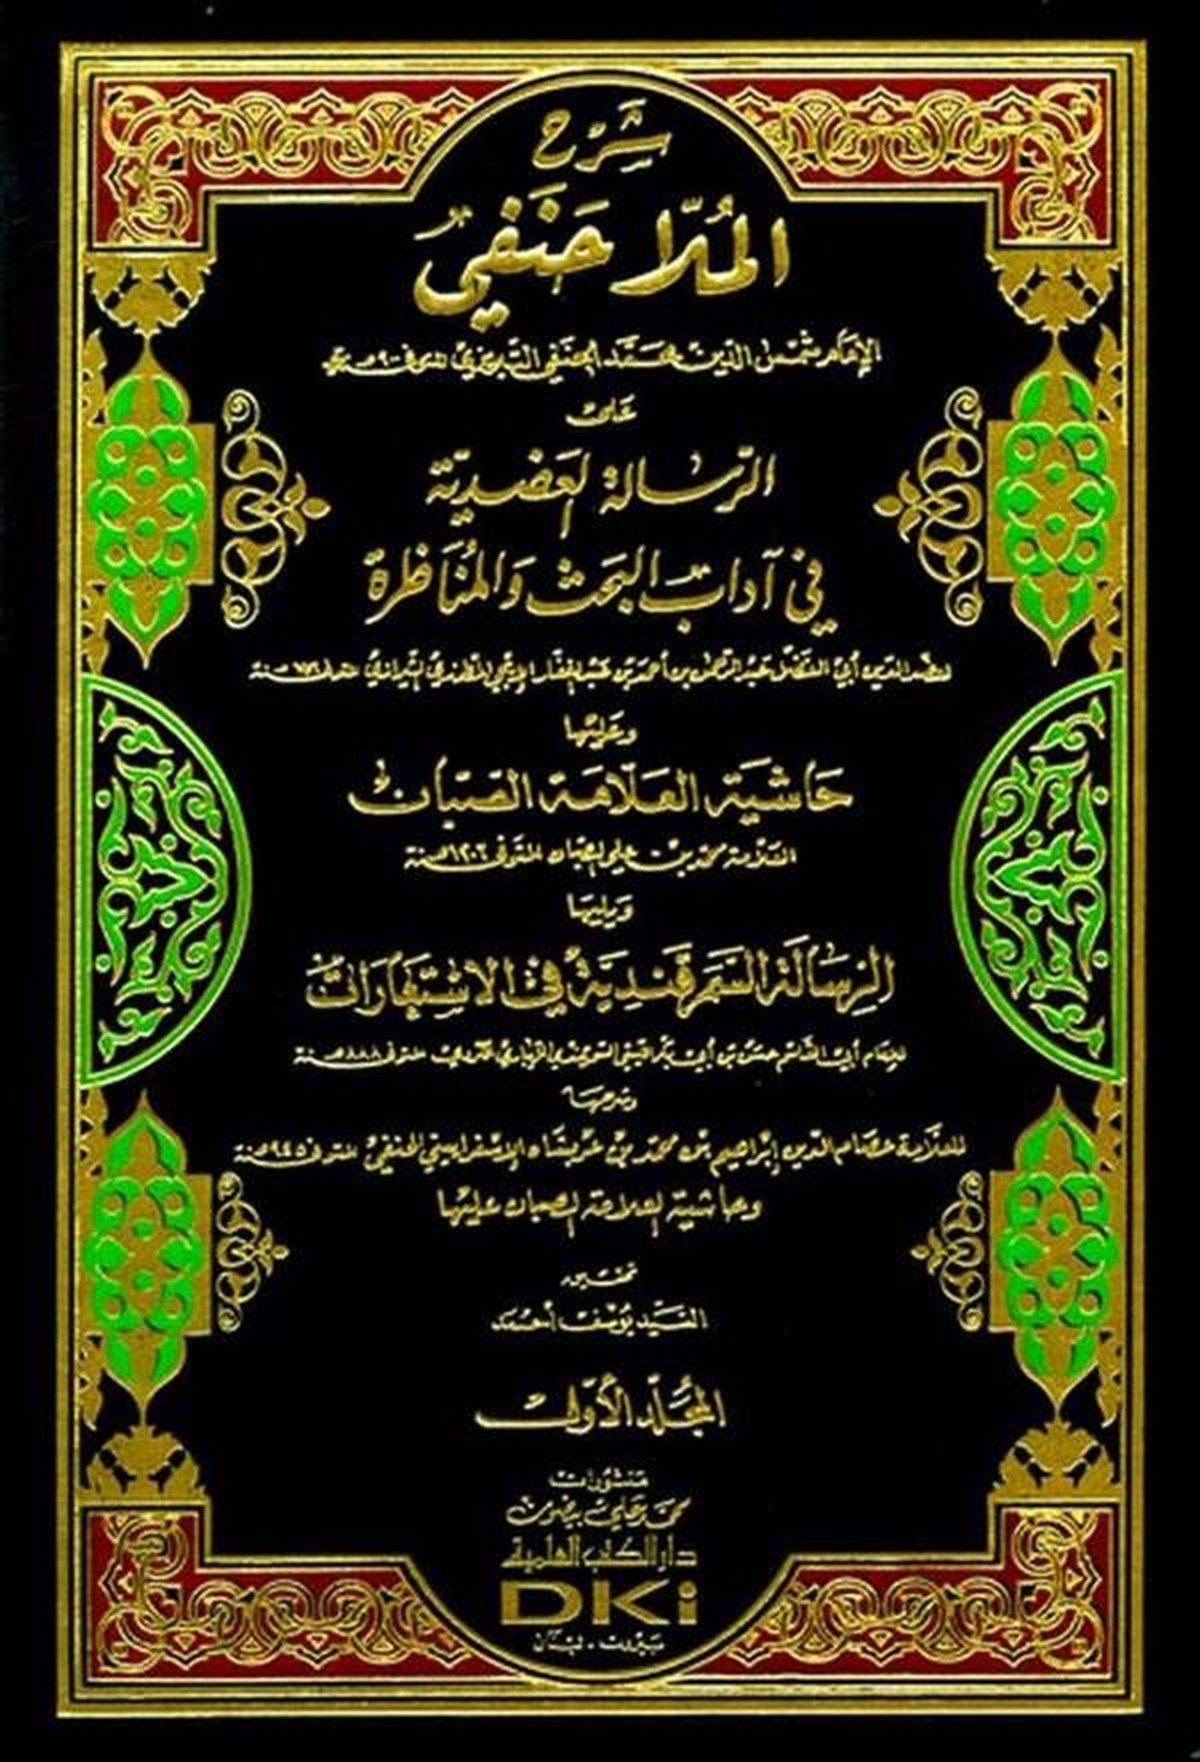 شرح
المُلّا حَنَفي
الإمام شمس الدين محمد الحنفي التبريزي المتوفى ٩٠٠ هـ
على
الرّسالة العَضديّة
في آداب البَحث وَالمُنَاظرة
لعضد الدين أبي الفضل عبد الرحمن بن أحمد بن عبد الغفار الإيجي المطرزي الشيرازي المتوفى سنة ٧٥٦هـ
وعَليْها
حَاشية العَلّامَة الصَّبّان
العلّامة محمد بن علي الصبان المتوفى سنة ١٢٠٦هـ
وَيليها
الرسَالة السَّمَرقندِيَّة في الاسْتِعَارَات
للإمام أبي القاسم بن أبي بكر الليثي السمرقندي المتوفى سنة ٨٨٨هـ
وشرحها
للعلّامة عصام الدين إبراهيم بن محمد بن عربشاه الإسفراييني الحنفي المتوفى سنة ٩٤٥هـ
وحاشية العلامة الصبان عليْها
تحقيق
السَّيّد يُوسُف أحمَد
المجَلّد الأوّل
منشورات
محمد علي بيضون
دار الكتب العلمية
DKi
بيروت - لبنان